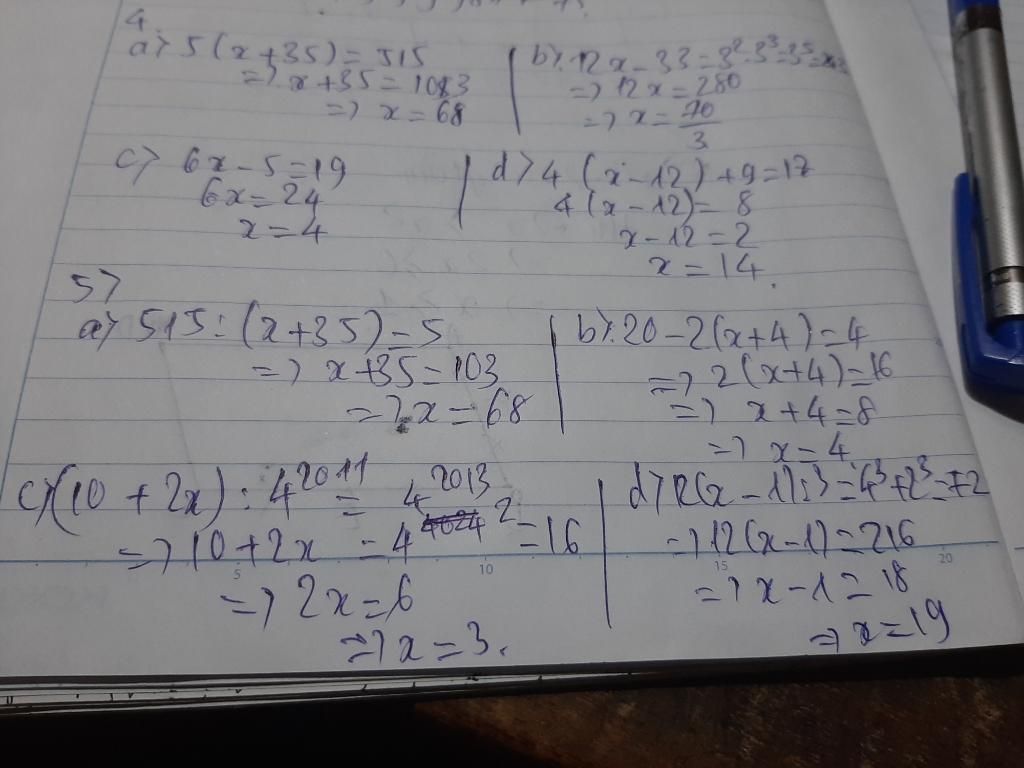 4.
a) 5(x+35)=515
=> x+35=103
=> x=68
b) 12x-33=3²·3³=3⁵
=> 12x=280
=> x=70/3
c) 6x-5=19
6x=24
x=4
d) 4(x-12)+9=17
4(x-12)=8
x-12=2
x=14.
5)
a) 515:(x+35)=5
=> x+35=103
=> x=68
b) 20-2(x+4)=4
=> 2(x+4)=16
=> x+4=8
=> x=4
c) (10+2x):4²⁰¹¹=4²⁰¹³
=> 10+2x=4²=16
=> 2x=6
=> x=3.
d) 12(x-1):3=4³+2³=72
=> 12(x-1)=216
=> x-1=18
=> x=19
5 10 15 20